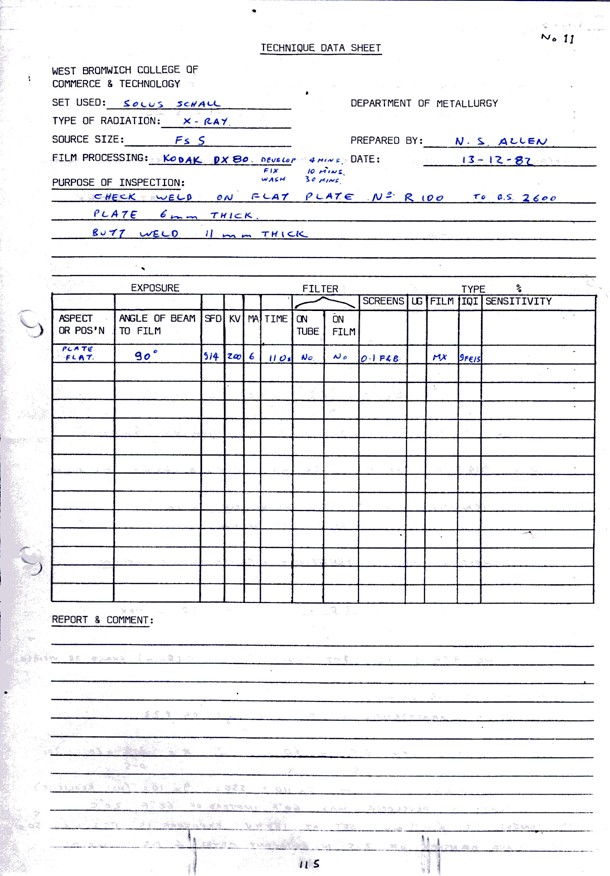 No 11
TECHNIQUE DATA SHEET
WEST BROMWICH COLLEGE OF
COMMERCE & TECHNOLOGY
SET USED: SOLUS SCHALL DEPARTMENT OF METALLURGY
TYPE OF RADIATION: X-RAY.
SOURCE SIZE: FS 5 PREPARED BY: N. S. ALLEN
FILM PROCESSING: KODAK DX80. DEVELOP 4 MINS. DATE: 13-12-82
FIX 10 MINS.
WASH 30 MINS.
PURPOSE OF INSPECTION:
CHECK WELD ON FLAT PLATE No R100 TO B.S. 2600
PLATE 6mm THICK.
BUTT WELD 11mm THICK
EXPOSURE FILTER TYPE %
SCREENS UG FILM IQI SENSITIVITY
ASPECT ANGLE OF BEAM SFD KV MA TIME ON ON
OR POS'N TO FILM TUBE FILM
PLATE
FLAT. 90° 514 200 6 110s No No 0.1 F&B MX 9FE15
REPORT & COMMENT:
115